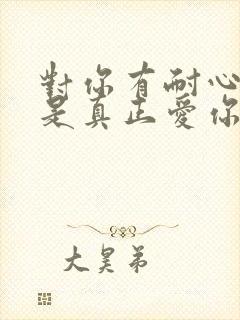 對你有耐心
是真正愛你
大昊弟